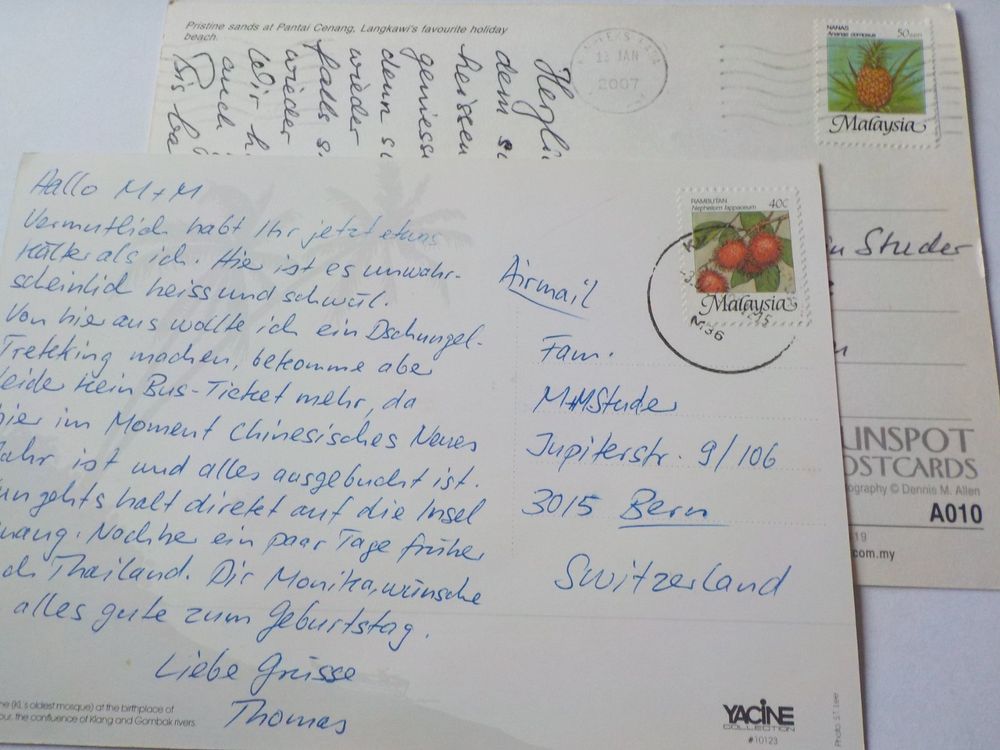 Pristine sands at Pantai Cenang, Langkawi's favourite holiday
beach.
13 JAN
2007
NANAS
Ananas comosus
50 sen
Malaysia
Herzli
dem s
heissen
geniess
denn s
wieder
falls s
wieder
Wir h
auch
Bis ba
Studer
UNSPOT
OSTCARDS
ography © Dennis M. Allen
A010
19
com.my
Hallo M + M
Vermutlich habt Ihr jetzt etwas
kälter als ich. Hier ist es unwahr-
scheinlich heiss und schwül.
Von hier aus wollte ich ein Dschungel-
Trekking machen, bekomme aber
leider kein Bus-Ticket mehr, da
hier im Moment Chinesisches Neues
Jahr ist und alles ausgebucht ist.
un gehts halt direkt auf die Insel
nang. Nochher ein paar Tage früher
ch Thailand. Dir Monika, wünsche
alles gute zum Geburtstag.
Liebe Grüsse
Thomas
RAMBUTAN
Nephelium lappaceum
40c
Malaysia
Airmail
Fam.
M+M.Studer
Jupiterstr. 9/106
3015 Bern
Switzerland
ne (KL's oldest mosque) at the birthplace of
our, the confluence of Klang and Gombak rivers.
YACINE
COLLECTION
#10123
Photo S.T. Lee